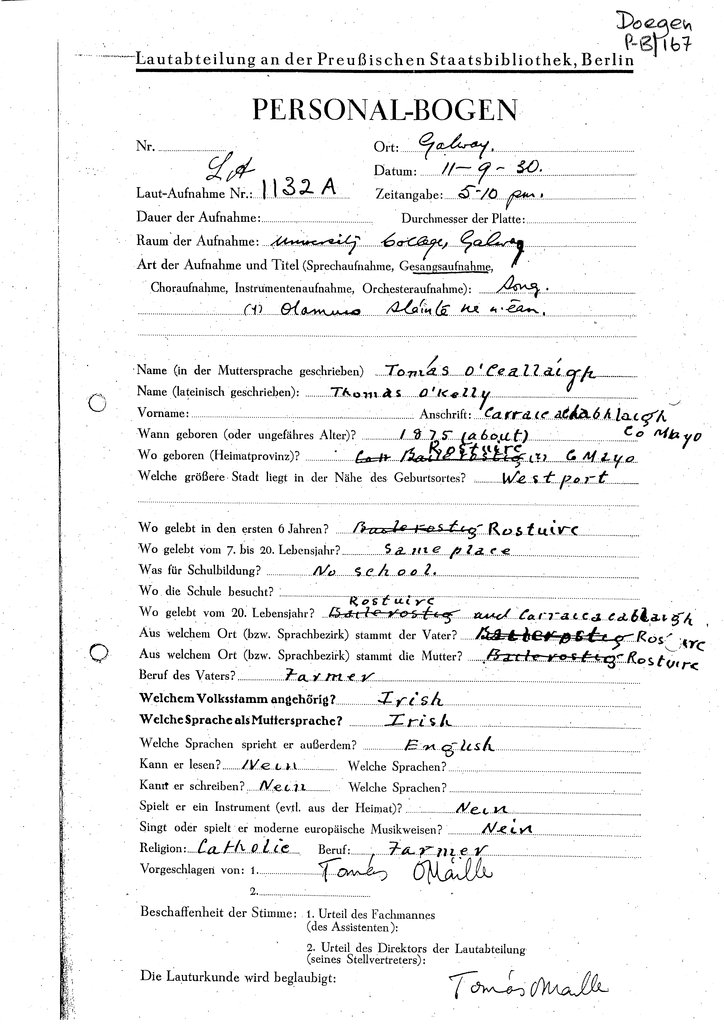 Doegen
P-B/167
Lautabteilung an der Preußischen Staatsbibliothek, Berlin
PERSONAL-BOGEN
Nr. Ort: Galway.
LA Datum: 11-9-30.
Laut-Aufnahme Nr.: 1132 A Zeitangabe: 5-10 pm.
Dauer der Aufnahme: Durchmesser der Platte:
Raum der Aufnahme: University College, Galway
Art der Aufnahme und Titel (Sprechaufnahme, Gesangsaufnahme,
Choraufnahme, Instrumentenaufnahme, Orchesteraufnahme): Song.
(1) Olamuio sláinte ne n-éan.
Name (in der Muttersprache geschrieben) Tomás O'Ceallaigh
Name (lateinisch geschrieben): Thomas O'Kelly
Vorname: Anschrift: Carraic a chabhlaigh
Co Mayo
Wann geboren (oder ungefähres Alter)? 1875 (about)
Rostuirc
Wo geboren (Heimatprovinz)? Baile rostig Co Mayo
Welche größere Stadt liegt in der Nähe des Geburtsortes? Westport
Wo gelebt in den ersten 6 Jahren? Baile rostig Rostuirc
Wo gelebt vom 7. bis 20. Lebensjahr? Same place
Was für Schulbildung? No school.
Wo die Schule besucht?
Rostuirc
Wo gelebt vom 20. Lebensjahr? Baile rostig and Carraicacabhlaigh.
Aus welchem Ort (bzw. Sprachbezirk) stammt der Vater? Baile rostig Rostuirc
Aus welchem Ort (bzw. Sprachbezirk) stammt die Mutter? Baile rostig Rostuirc
Beruf des Vaters? Farmer
Welchem Volksstamm angehörig? Irish
Welche Sprache als Muttersprache? Irish
Welche Sprachen spricht er außerdem? English
Kann er lesen? Nein Welche Sprachen?
Kann er schreiben? Nein Welche Sprachen?
Spielt er ein Instrument (evtl. aus der Heimat)? Nein
Singt oder spielt er moderne europäische Musikweisen? Nein
Religion: Catholic Beruf: Farmer
Vorgeschlagen von: 1. Tomás Ó Máille
2.
Beschaffenheit der Stimme: 1. Urteil des Fachmannes
(des Assistenten):
2. Urteil des Direktors der Lautabteilung
(seines Stellvertreters):
Die Lauturkunde wird beglaubigt: Tomás Ó Máille